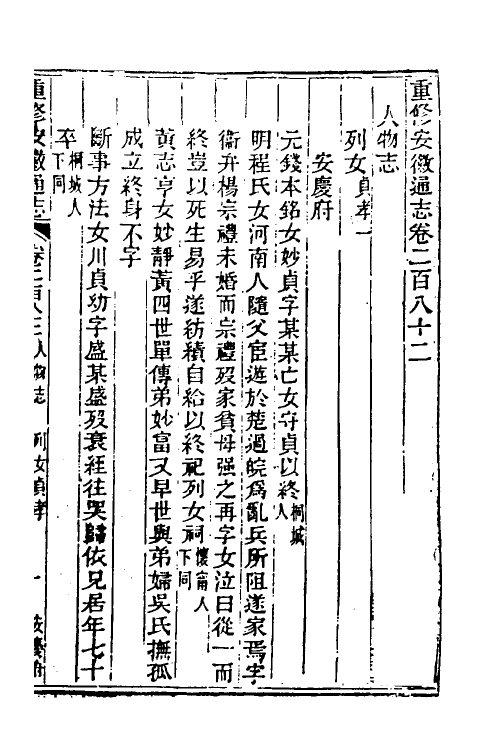 重修安徽通志卷二百八十二
人物志
列女貞孝一
安慶府
元錢本銘女妙貞字某某亡女守貞以終桐城人
明程氏女河南人隨父宦遊於楚過皖爲亂兵所阻遂家焉字
衞弁楊宗禮未婚而宗禮歿家貧母强之再字女泣曰從一而
終豈以死生易乎遂紡績自給以終祀列女祠懷甯人下同
黃志亨女妙靜黃四世單傳弟妙富又早世與弟婦吳氏撫孤
成立終身不字
斷事方法女川貞幼字盛某盛歿衰絰往哭歸依兄居年七十
卒桐城人下同
重修安徽通志 卷二百八十二 人物志 列女貞孝 一 安慶府